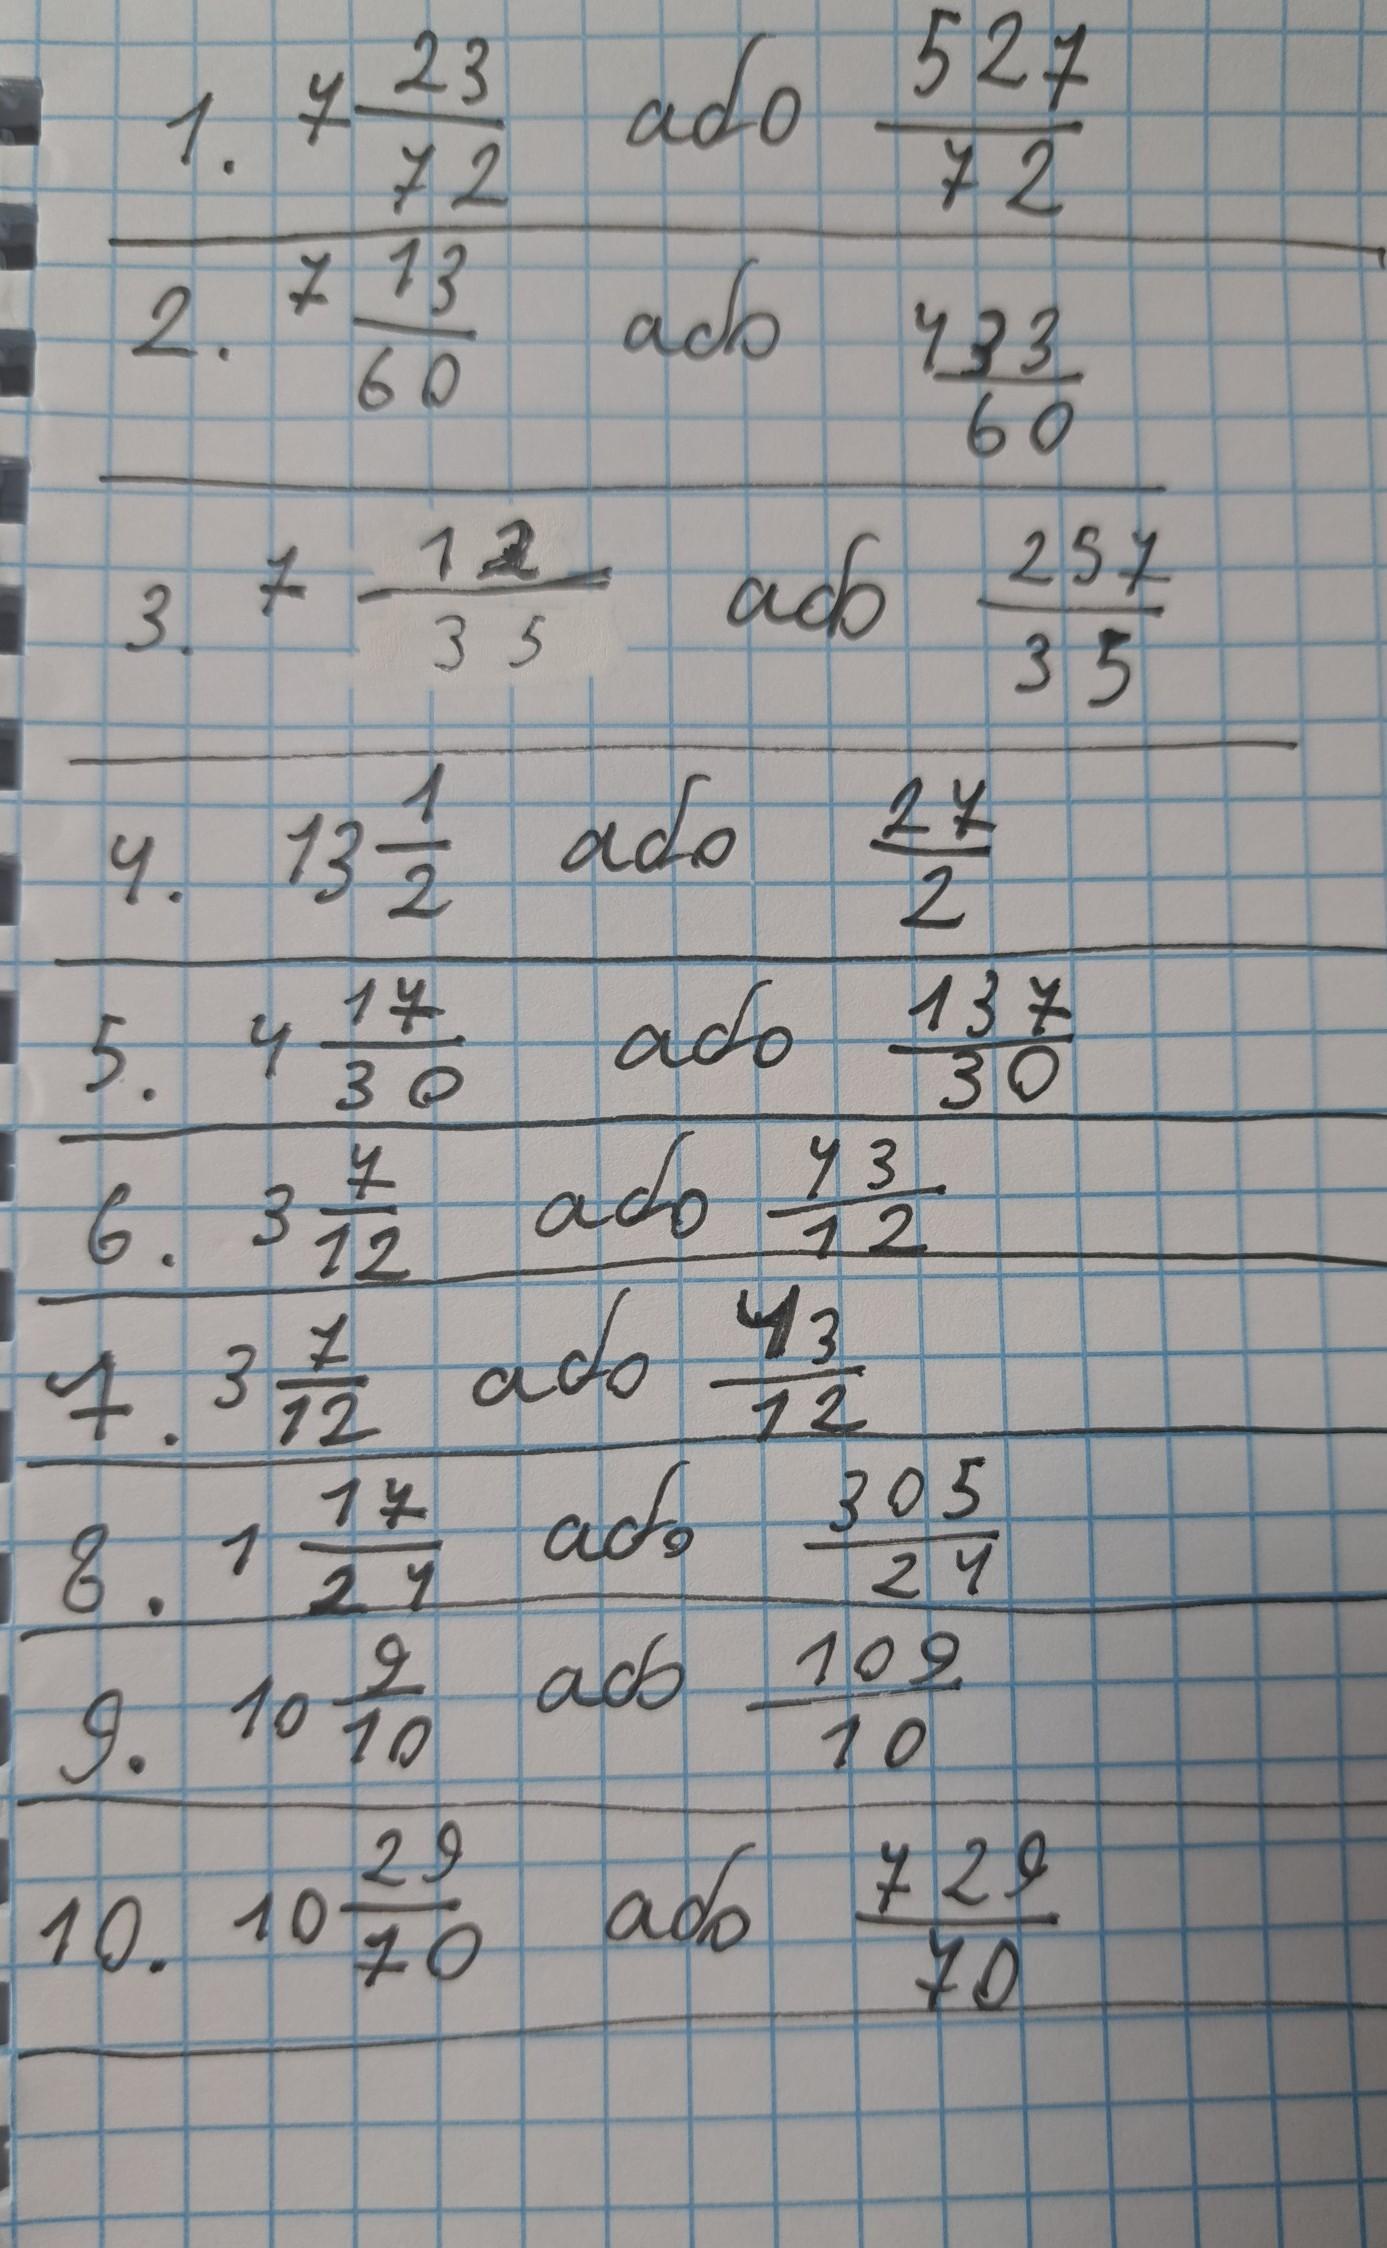 1. 7 23/72 ado 527/72
2. 7 13/60 ado 433/60
3. 7 12/35 ado 257/35
4. 13 1/2 ado 27/2
5. 4 17/30 ado 137/30
6. 3 7/12 ado 43/12
7. 3 7/12 ado 43/12
8. 1 17/24 ado 305/24
9. 10 9/10 ado 109/10
10. 10 29/70 ado 729/70